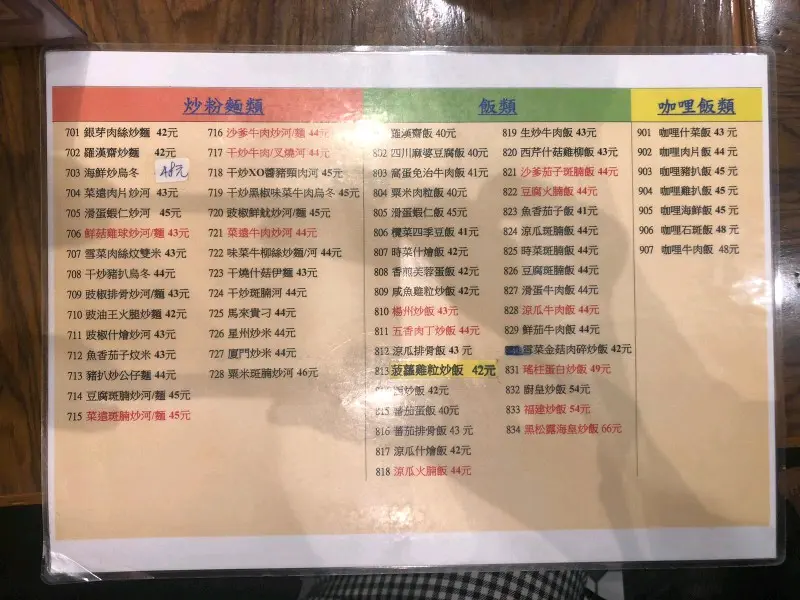 炒粉麵類
701 銀芽肉絲炒麵 42元
702 羅漢齋炒麵 42元
703 海鮮炒烏冬 48元
704 菜遠肉片炒河 43元
705 滑蛋蝦仁炒河 45元
706 鮮菇雞球炒河/麵 43元
707 雪菜肉絲炆雙米 43元
708 干炒豬扒烏冬 44元
709 豉椒排骨炒河/麵 43元
710 豉油王火腿炒麵 42元
711 豉椒什燴炒河 43元
712 魚香茄子炆米 43元
713 豬扒炒公仔麵 44元
714 豆腐斑腩炒河/麵 45元
715 菜遠斑腩炒河/麵 45元
716 沙爹牛肉炒河/麵 44元
717 干炒牛肉/叉燒河 44元
718 干炒XO醬豬頸肉河 45元
719 干炒黑椒味菜牛肉烏冬 45元
720 豉椒鮮魷炒河/麵 45元
721 菜遠牛肉炒河 44元
722 味菜牛柳絲炒麵/河 44元
723 干燒什菇伊麵 43元
724 干炒斑腩河 44元
725 馬來貴刁 44元
726 星州炒米 44元
727 廈門炒米 44元
728 粟米斑腩炒河 46元
飯類
羅漢齋飯 40元
802 四川麻婆豆腐飯 40元
803 窩蛋免治牛肉飯 41元
804 粟米肉粒飯 40元
805 滑蛋蝦仁飯 45元
806 欖菜四季豆飯 41元
807 時菜什燴飯 42元
808 香煎芙蓉蛋飯 42元
809 咸魚雞粒炒飯 42元
810 楊州炒飯 43元
811 五香肉丁炒飯 44元
812 涼瓜排骨飯 43元
813 菠蘿雞粒炒飯 42元
炒飯 42元
815 蕃茄蛋飯 40元
816 蕃茄排骨飯 43元
817 涼瓜什燴飯 42元
818 涼瓜火腩飯 44元
819 生炒牛肉飯 43元
820 西芹什菇雞柳飯 43元
821 沙爹茄子斑腩飯 44元
822 豆腐火腩飯 44元
823 魚香茄子飯 41元
824 涼瓜斑腩飯 44元
825 時菜斑腩飯 44元
826 豆腐斑腩飯 44元
827 滑蛋牛肉飯 44元
828 涼瓜牛肉飯 44元
829 鮮茄牛肉飯 44元
雪菜金菇肉碎炒飯 42元
831 瑤柱蛋白炒飯 49元
832 廚皇炒飯 54元
833 福建炒飯 54元
834 黑松露海皇炒飯 66元
咖哩飯類
901 咖哩什菜飯 43元
902 咖哩肉片飯 44元
903 咖哩豬扒飯 45元
904 咖哩雞扒飯 45元
905 咖哩海鮮飯 45元
906 咖哩石斑飯 48元
907 咖哩牛肉飯 48元